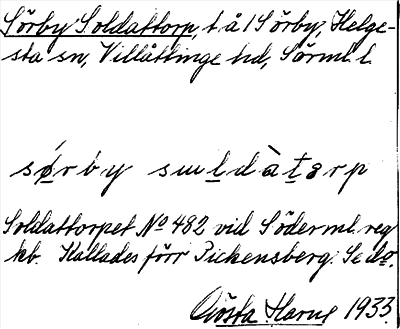 Sörby Soldattorp, t å 1 Sörby, Helge-
sta sn, Villåttinge hd, Sörml. l.
sørby sωldàtɜrp
Soldattorpet No 482 vid Söderml. reg
kb. Kallades förr Pickensberg. Se do.
Gösta Harne 1933.